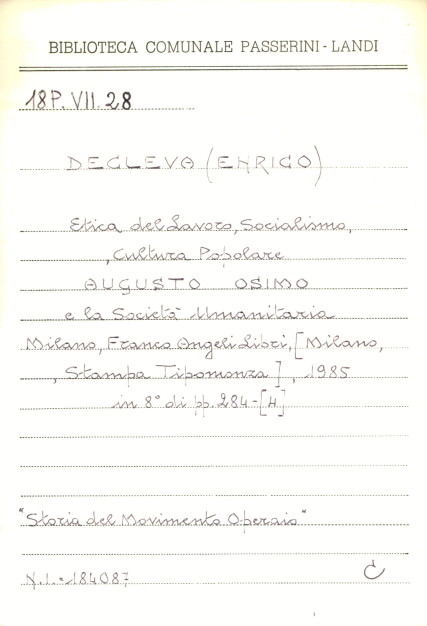 BIBLIOTECA COMUNALE PASSERINI - LANDI
18P. VII. 28
DECLEVA (ENRICO)
Etica del Lavoro, Socialismo,
, Cultura Popolare
AUGUSTO OSIMO
e la Società Umanitaria
Milano, Franco Angeli Libri, [Milano,
, Stampa Tipomonza], 1985
in 8° di pp. 284-[4]
"Storia del Movimento Operaio"
N.I. = 184087
C